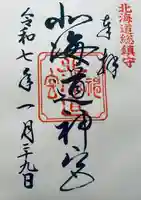 北海道総鎮守
奉拝
北海道神宮
北海道神宮
令和七年一月二十九日